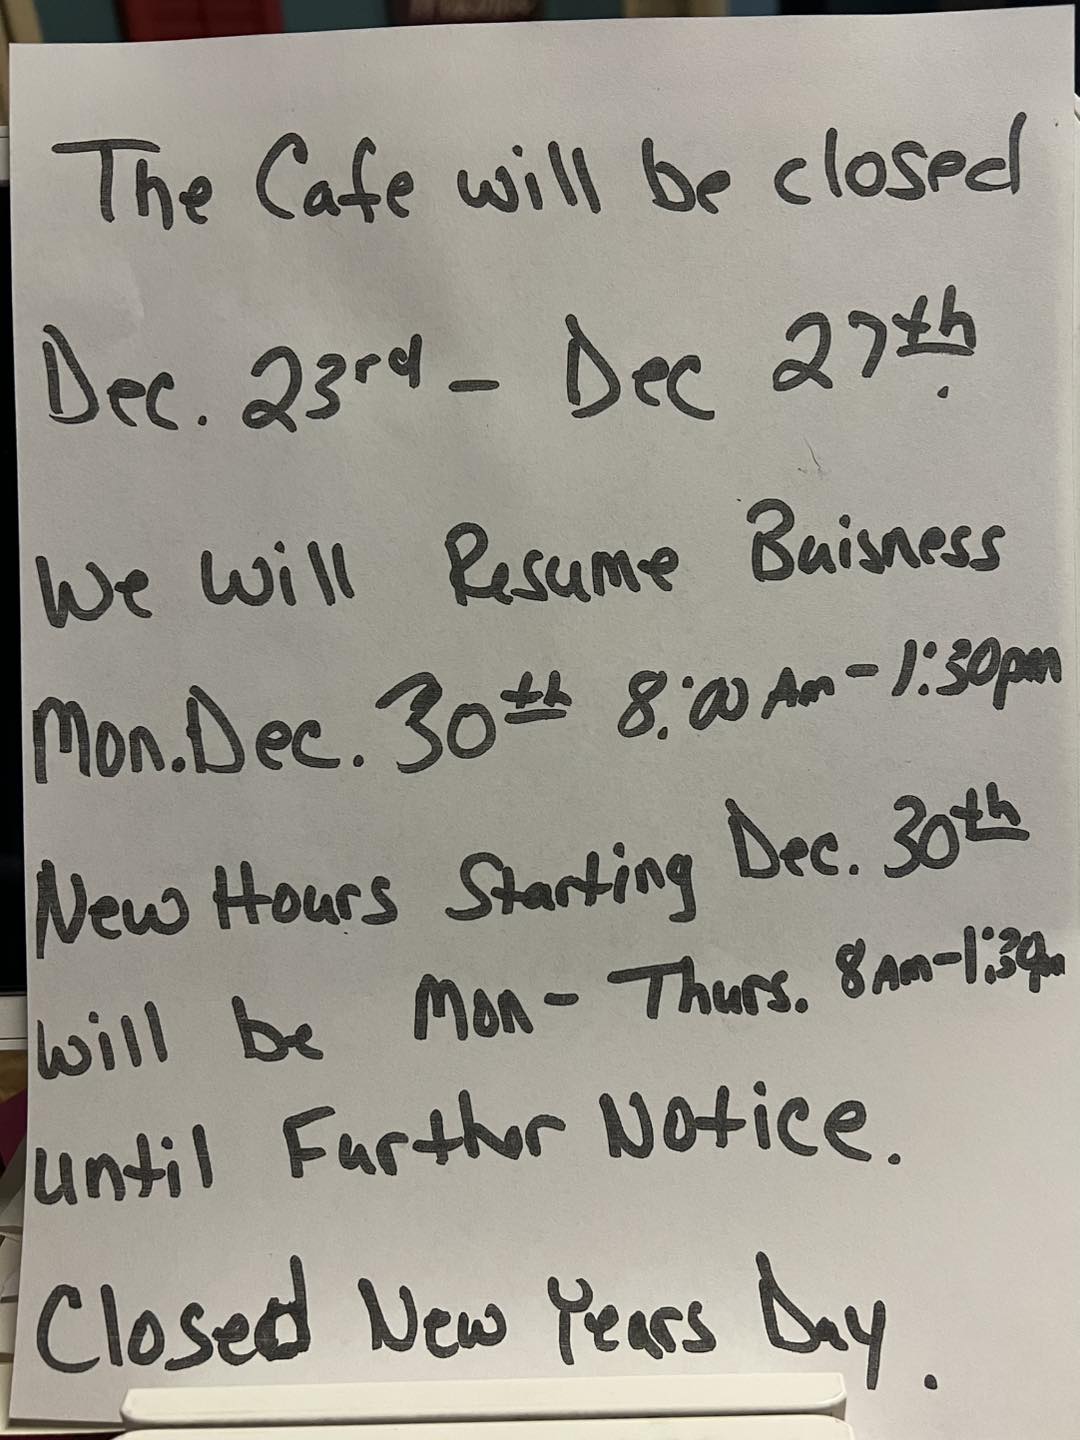 The Cafe will be closed
Dec. 23rd - Dec 27th.
We Will Resume Buisness
Mon. Dec. 30th 8:00 Am - 1:30pm
New Hours Starting Dec. 30th
will be Mon - Thurs. 8 Am - 1:30pm
until Furthur Notice.
Closed New Years Day.